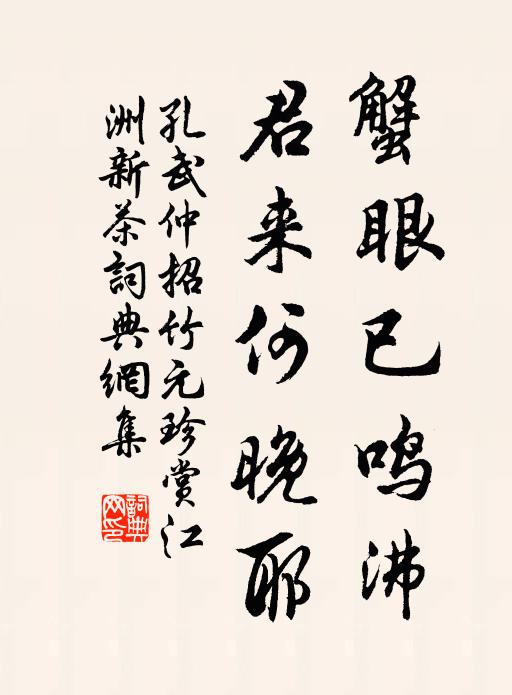 蟹眼已鸣沸
君来何晚耶
孔武仲招竹元珍赏江
洲新茶詞典網集
詞典網印